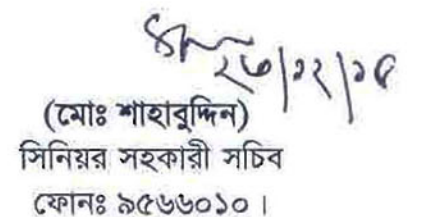 (মোঃ শাহাবুদ্দিন)
সিনিয়র সহকারী সচিব
ফোনঃ ৯৫৬৬০১০।